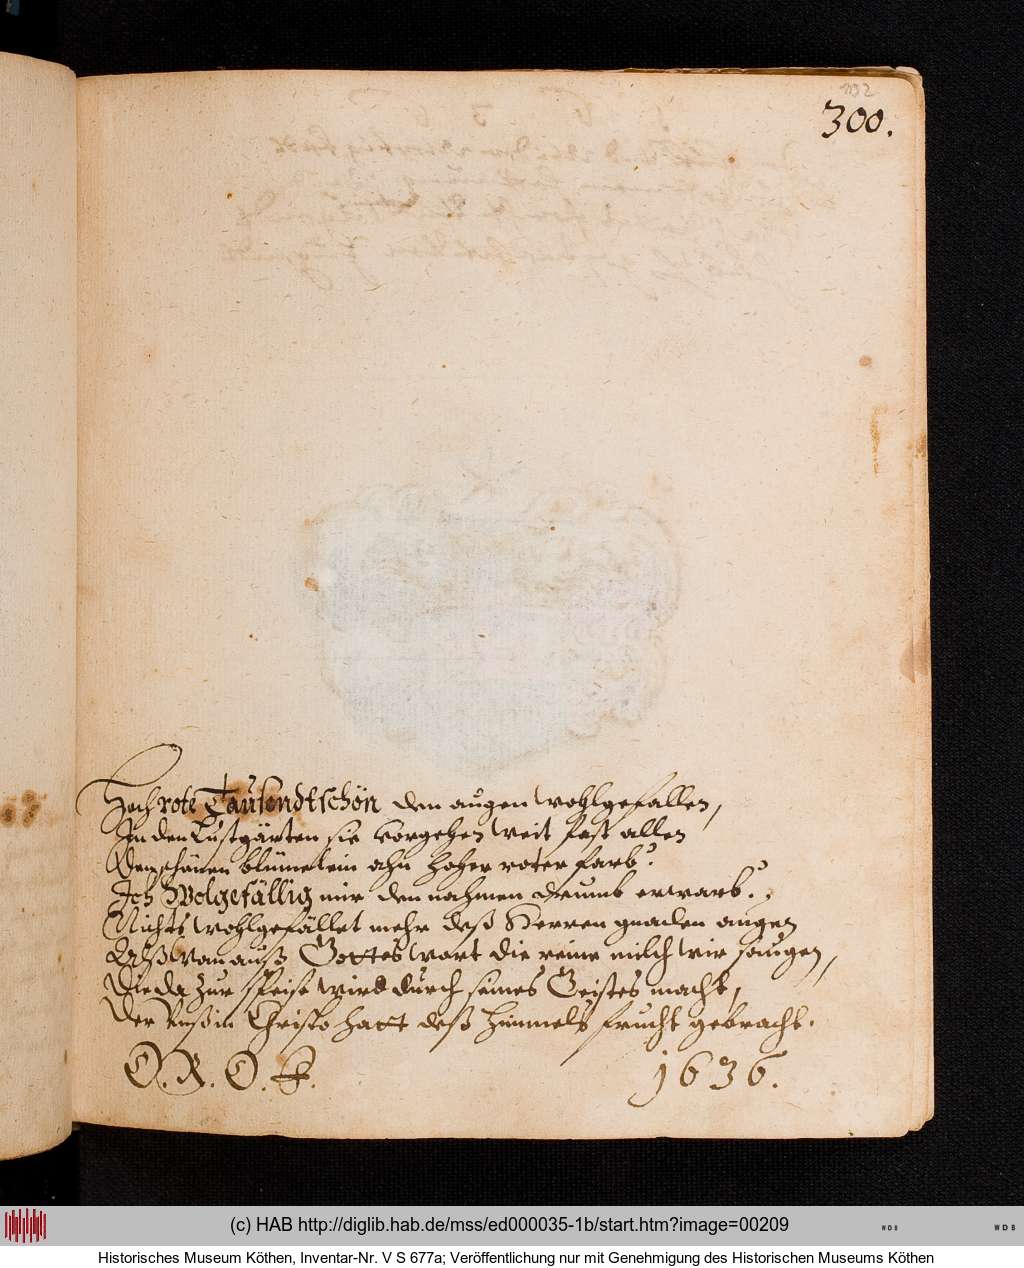 1132
300.
Hochrote Tausendtschön den augen wohlgefallen,
In den Lustgärten sie vorgehen weit fast allen
Den schönen blümelein ahn hoher roter farb:
Ich Wolgefällig mir den nahmen drumb erwarb:
Nichts wohlgefället mehr deß Herren gnaden augen
Alß wan auß Gottes wort die reine milch wir saugen,
Die da zur speise wird durch seines Geistes macht,
Der unß in Christo hatt deß himmels frucht gebracht.
1636.
(c) HAB http://diglib.hab.de/mss/ed000035-1b/start.htm?image=00209
WDB
WDB
Historisches Museum Köthen, Inventar-Nr. V S 677a; Veröffentlichung nur mit Genehmigung des Historischen Museums Köthen